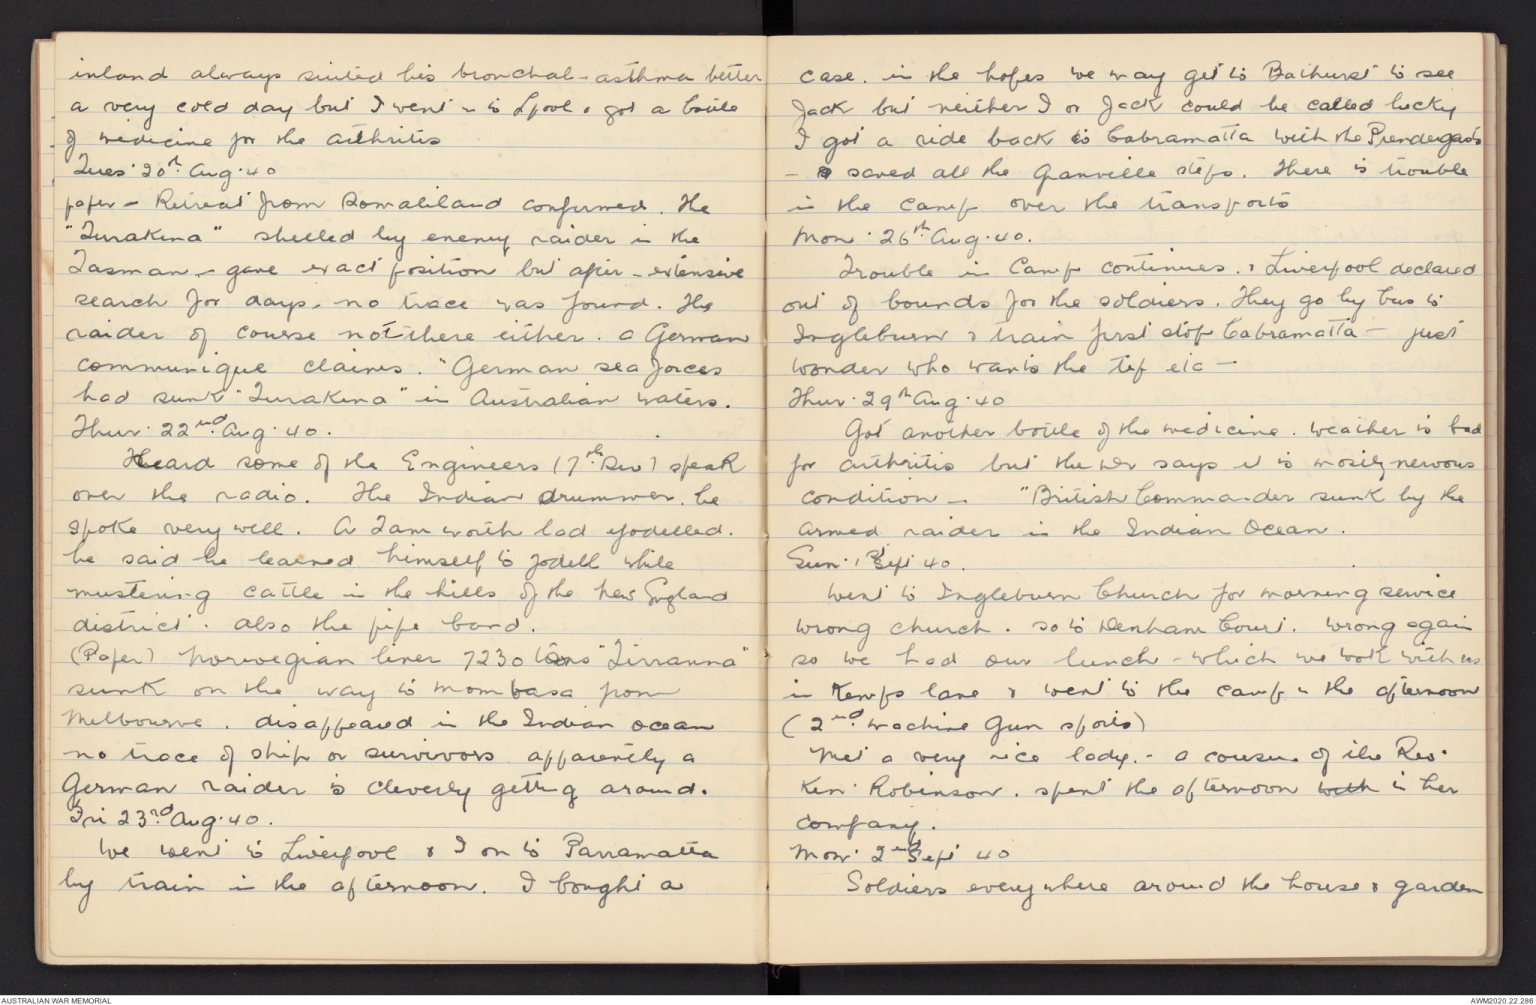 inland always suited his bronchal-asthma better
a very cold day but I went in to L'pool & got a bottle
of medicine for the arthritis
Tues 20th Aug. 40
paper - Retreat from Somaliland confirmed. The
"Turakina" shelled by enemy raider in the
Tasman - gave exact position but after - extensive
search for days. no trace was found. The
raider of course not there either. a German
communique claims. "German sea forces
had sunk "Turakina" in Australian waters.
Thur. 22nd Aug. 40.
Heard some of the Engineers (7th Div) speak
over the radio. The Indian drummer. he
spoke very well. A Tamworth lad yodelled.
he said he learned himself to yodell while
mustering cattle in the hills of the New England
district. also the pipe band.
(Paper) Norwegian liner 7230 tons "Tirranna"
sunk on the way to Mombasa from
Melbourne. disappeared in the Indian Ocean
no trace of ship or survivors apparently a
German raider is cleverly getting around.
Fri 23rd Aug. 40.
We went to Liverpool & I on to Parramatta
by train in the afternoon. I bought a
case. in the hopes we may get to Bathurst to see
Jack but neither I or Jack could be called lucky
I got a ride back to Cabramatta with the Prendergasts
- & saved all the Granville steps. There is trouble
in the camp over the transports
Mon. 26th Aug. 40.
Trouble in Camp continues. & Liverpool declared
out of bounds for the soldiers. They go by bus to
Ingleburn & train first stop Cabramatta - just
wonder who wants the tip etc -
Thur. 29th Aug. 40
Got another bottle of the medicine. Weather is bad
for arthritis but the Dr says it is mostly nervous
condition - "British Commander sunk by the
armed raider in the Indian Ocean.
Sun. 1st Sept 40.
Went to Ingleburn Church for morning service
wrong church. so to Denham Court. wrong again
so we had our lunch - which we took with us
in Kemps lane & went to the camp in the afternoon
(2nd machine Gun sports)
Met a very nice lady. - a cousin of the Rev.
Ken. Robinson. spent the afternoon with in her
company.
Mon. 2nd Sept 40
Soldiers everywhere around the house & garden
AUSTRALIAN WAR MEMORIAL
AWM2020.22.286